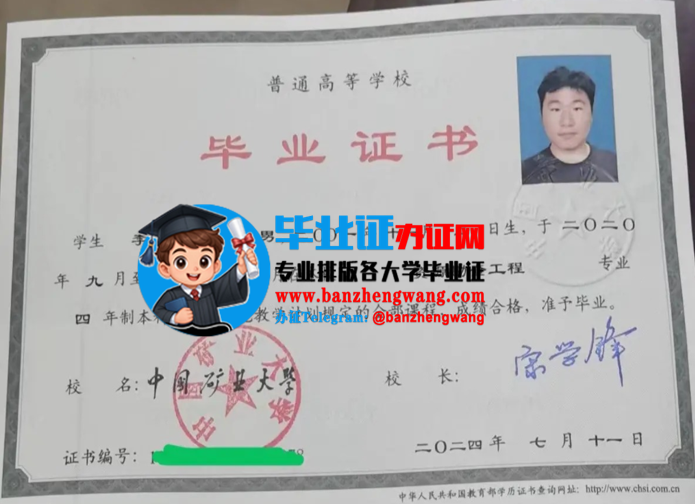 普通高等学校
毕业证书
学生 李 男 二〇〇一年十 日生，于二〇二〇
年 九 月至 工程 专业
四 年制本 教学计划规定的全部课程，成绩合格，准予毕业。
毕业证办证网
专业排版各大学毕业证
www.banzhengwang.com
办证Telegram: @banzhengwang
校 名：中国矿业大学
校 长：
中国矿业大学
证书编号：
二〇二四年 七 月 十一 日
中华人民共和国教育部学历证书查询网址：http://www.chsi.com.cn